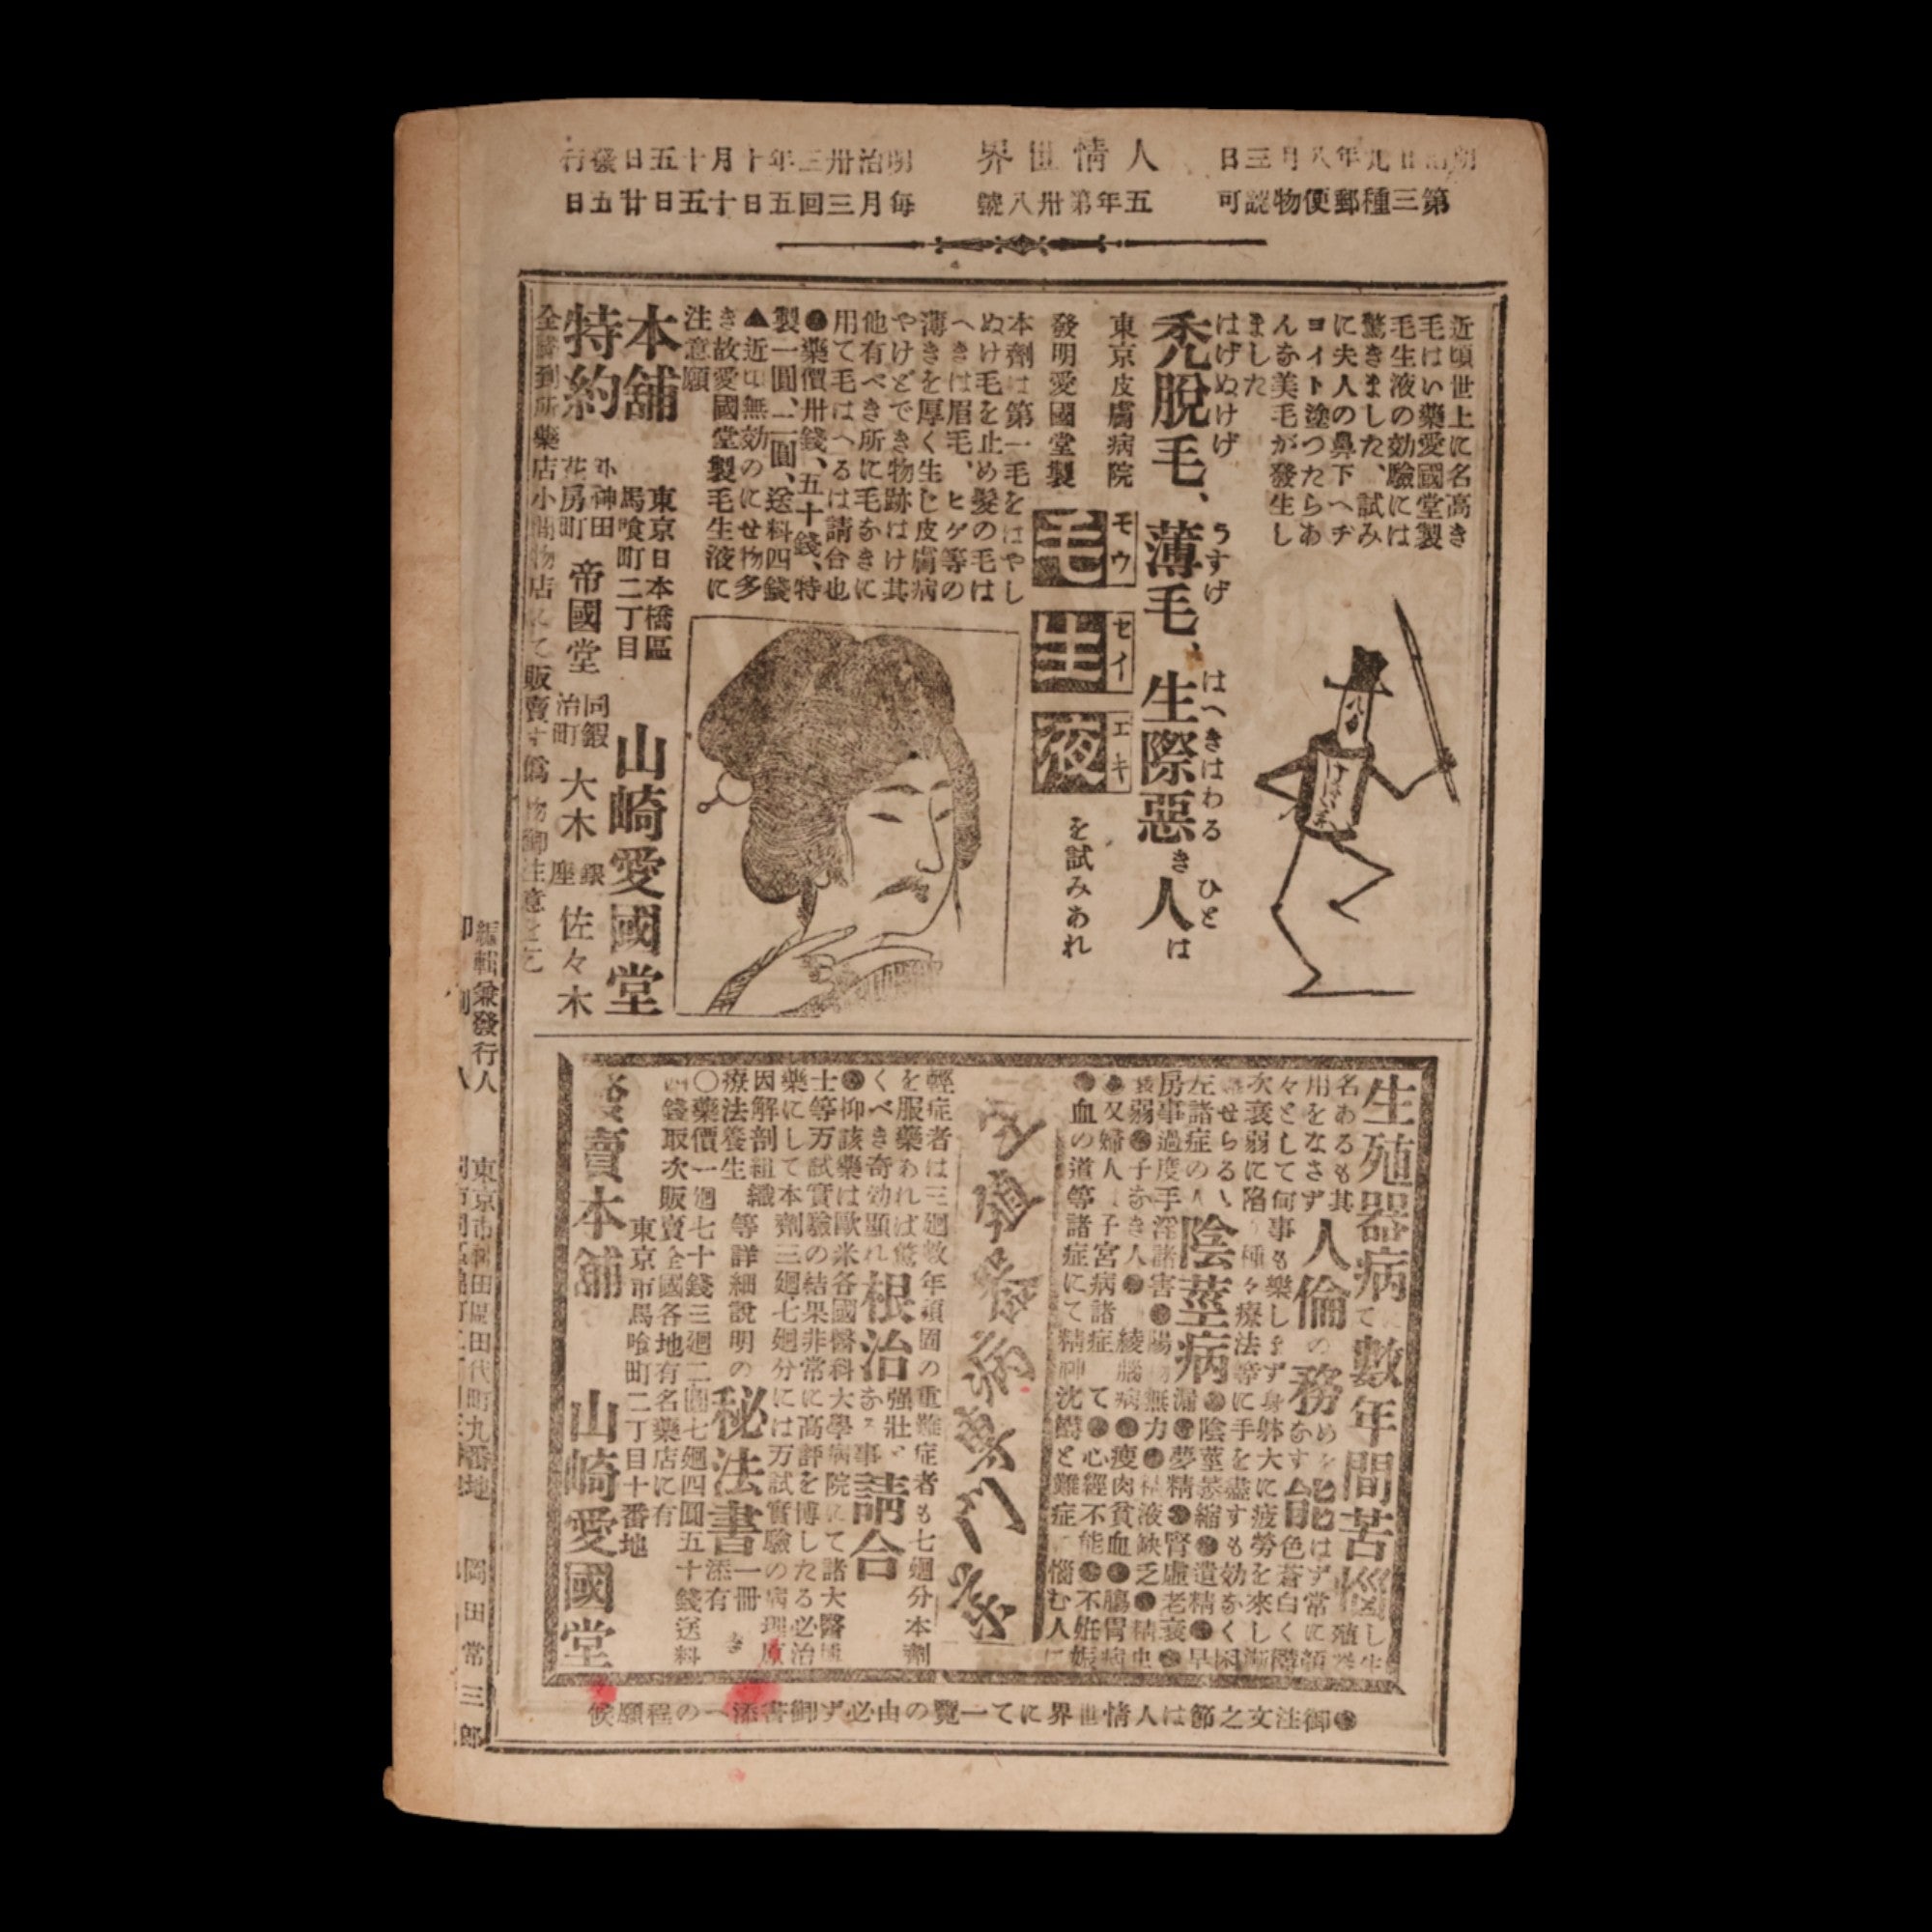 明治廿九年八月三日
第三種郵便物認可
人情世界
五年第卅八號
明治卅三年十月十五日發行
毎月三回五日十五日廿五日
近頃世上に名高き
毛はい藥愛國堂製
毛生液の効驗には
驚きました、試み
に夫人の鼻下へヂ
ヨイト塗つたらあ
んな美毛が發生し
ました
はげぬけげ うすげ はへきはわる ひと
禿脫毛、薄毛、生際惡き人は
東京皮膚病院
發明愛國堂製
モウ セイ エキ
毛生液
を試みあれ
本劑は第一毛をはやし
ぬけ毛を止め髮の毛は
へきは眉毛、ヒゲ等の
薄きを厚く生じ皮膚病
やけどでき物跡はけ其
他有べき所に毛なきに
用て毛はへるは請合也
●藥價卅錢、五十錢、特
製一圓、二圓、送料四錢
▲近頃無効のにせ物多
き故愛國堂製毛生液に
注意願
本舗 東京日本橋區馬喰町二丁目 山崎愛國堂
特約 外神田花房町 帝國堂 同鍜治町 大木 銀座 佐々木
全國到所藥店小間物店にて販賣す僞物御注意を乞
生殖器病にて數年間苦惱し生殖器
名あるも其
用をなさず人倫の務めをなす能はず常に顏
色蒼白く
々として何事も樂しまず身躰大に疲勞を來し漸
次衰弱に陷り種々療法等に手を盡すも効なく困
せらるゝ陰莖病
左諸症の人
●陰莖萎縮●遺精●早
漏●夢精●腎虛老衰●
房事過度手淫諸害●陽物無力●精液缺乏●精虫
衰弱●子なき人●
腦病●瘦肉貧血●膓胃病
●又婦人子宮病諸症
て●心經不能●不妊娠
●血の道等諸症にて精神沈欝と難症に惱む人に
生殖器病專門藥
輕症者は三廻數年頑固の重難症者も七廻分本劑
を服藥あれば驚
くべき奇効顯れ根治
强壯
なる事請合
●抑該藥は歐米各國醫科大學病院にて諸大醫
士等万試實驗の結果非常に高評を博したる必治
藥にして本劑三廻七廻分には万試實驗の病理原
因解剖組織
療法養生等詳細說明の秘法書一冊添有
○藥價一廻七十錢三廻二圓七廻四圓五十錢送料
四錢取次販賣全國各地有名藥店に有
發賣本舗 東京市馬喰町二丁目十番地 山崎愛國堂
●御注文之節は人情世界にて一覽の由必ず御書添への程願候
編輯兼發行人 東京市神田區田代町九番地 岡田常三郎